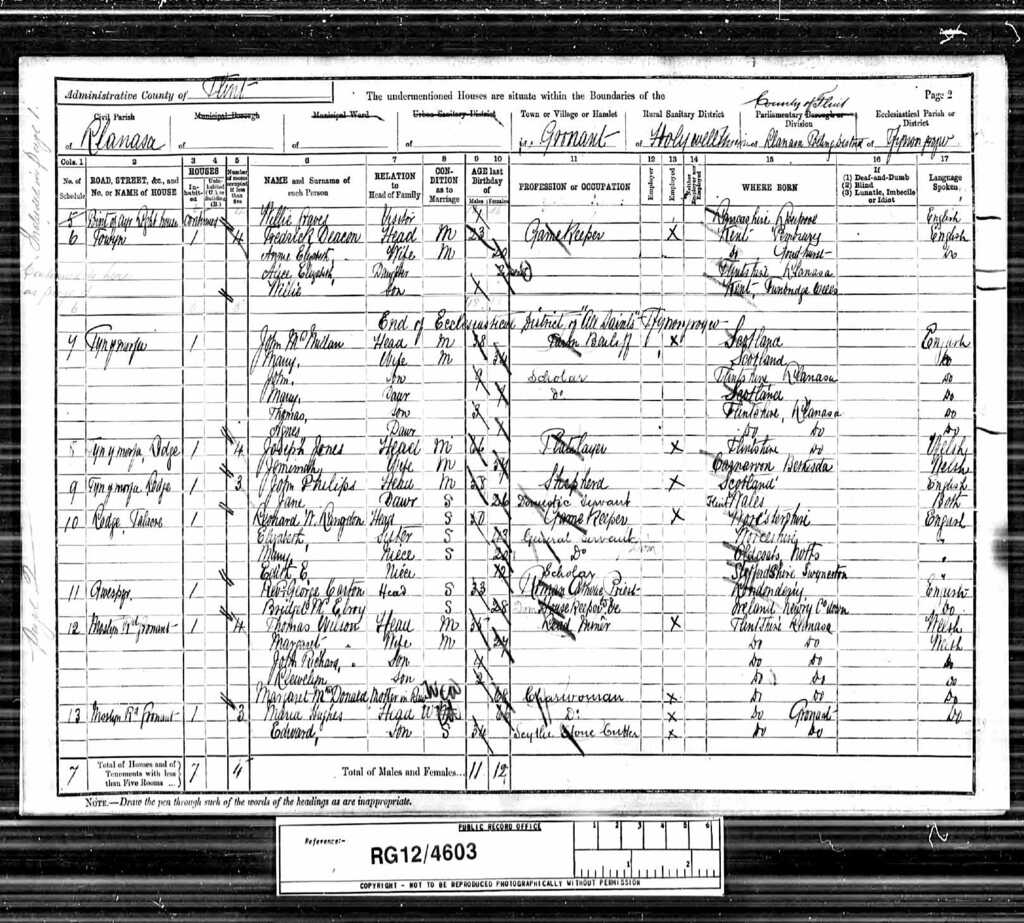 Administrative County of Flint
The undermentioned Houses are situate within the Boundaries of the
Page 2
Civil Parish
Municipal Borough
Municipal Ward
Urban Sanitary District
Town or Village or Hamlet
Rural Sanitary District
County of Flint
Parliamentary Borough or Division
Ecclesiastical Parish or District
of Llanasa
of Gronant
of Holywell
of
Cols. 1 2 3 4 5 6 7 8 9 10 11 12 13 14 15 16 17
No. of Schedule
ROAD, STREET, &c., and No. or NAME of HOUSE
HOUSES
Inhabited
Number of rooms occupied if less than five
NAME and Surname of each Person
RELATION to Head of Family
CONDITION as to Marriage
AGE last Birthday of
Males Females
PROFESSION or OCCUPATION
Employer
Employed
Neither Employer nor Employed
WHERE BORN
If
(1) Deaf-and-Dumb
(2) Blind
(3) Lunatic, Imbecile or Idiot
Language Spoken
5 Point of ayr Light house continued Willie Graves Visitor English
6 Towyn 1 4 Fredrick Deacon Head M 23 Game Keeper X Kent English
Annie Elizabeth " Wife M 20 Do Goudhurst Do
Alice Elizabeth Daughter Flintshire Llanasa
Willie Son Kent, Tunbridge Wells
End of Ecclesiastical District of "All Saints"
7 Tynymorfa 1 John McMillan Head M 38 Farm Bailiff X Scotland English
Mary, Wife M 34 Scotland Do
John, Son Scholar Flintshire Llanasa Do
Mary, Dawr Do Scotland Do
Thomas, Son 3 Flintshire, Llanasa Do
Agnes Dawr Do Do Do
8 Tynymorfa Lodge 1 4 Joseph Jones Head M 36 Platelayer X Flintshire Welsh
Jemimah, Wife M 34 Carnarvon Bethesda Welsh
9 Tynymorfa Lodge 1 3 John Philips Head M 58 Shepherd X Scotland English
Jane Dawr S 26 Domestic Servant Wales Both
10 Lodge, Talacre 1 Richard W. Langdon Head S 30 Game Keeper X Worcestershire English
Elizabeth, Sister S 23 General Servant "
Mary, Niece S 20 Do Oldcoats, Notts "
Edith E Niece 12 Scholar Staffordshire Swynerton "
11 Gwespyr 1 Revd George Carton Head S 33 Roman Catholic Priest Londonderry English
Bridget McElroy S 28 Housekeeper Ireland Newry Co Down Do
12 Mostyn Rd Gronant 1 4 Thomas Wilson Head M 35 Lead Miner X Flintshire Llanasa Welsh
Margaret " Wife M 27 Do Do Welsh
John Richard, " Son 4 Do Do Do
Llewelyn Son 2 Do Do Do
Margaret McDonald Mother in Law Wid 68 Charwoman X Do Do Do
13 Mostyn Rd Gronant 1 3 Maria Hughes Head Do X Do Gronant Do
Edward, Son S 34 Scythe Stone Cutter X Do Do
7 Total of Houses and of Tenements with less than Five Rooms 7 4 Total of Males and Females... 11 12
NOTE.—Draw the pen through such of the words of the headings as are inappropriate.
PUBLIC RECORD OFFICE
Reference:-
RG12/4603
1 2 3 4 5 6
1 2
COPYRIGHT - NOT TO BE REPRODUCED PHOTOGRAPHICALLY WITHOUT PERMISSION